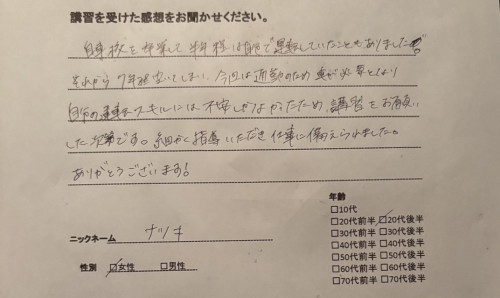 講習を受けた感想をお聞かせください。
自車校を卒業して半年程は自分で運転していたこともありましたが、
それから7年程空いてしまい、今回は通勤のため車が必要となり
自分の運転スキルには不安しかなかったため、講習をお願い
した次第です。細かく指導いただき仕事に備えられました。
ありがとうございます!
ニックネーム ナツキ
性別 ☑女性 □男性
年齢
□10代
□20代前半 ☑20代後半
□30代前半 □30代後半
□40代前半 □40代後半
□50代前半 □50代後半
□60代前半 □60代後半
□70代前半 □70代後半